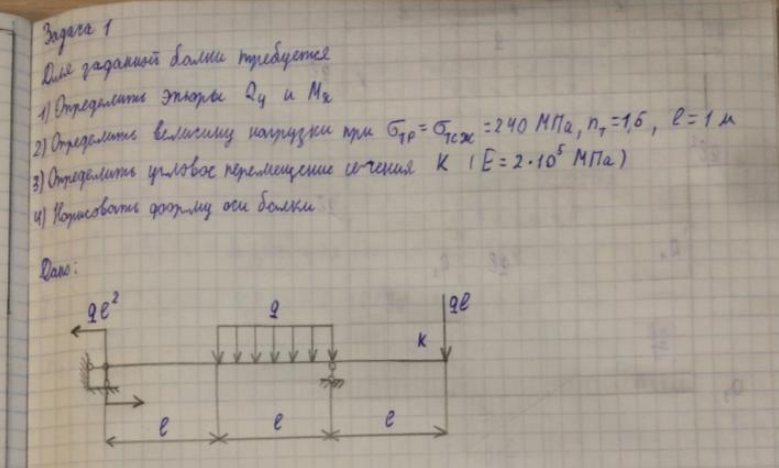 Задача 1
Для заданной балки требуется
1) Определить эпюры Qy и Mx
2) Определить величину нагрузки при σтр = σтсж = 240 МПа, nт = 1,6, l = 1 м
3) Определить угловое перемещение сечения K (E = 2·10⁵ МПа)
4) Нарисовать форму оси балки
Дано:
ql² q ql
K
l l l